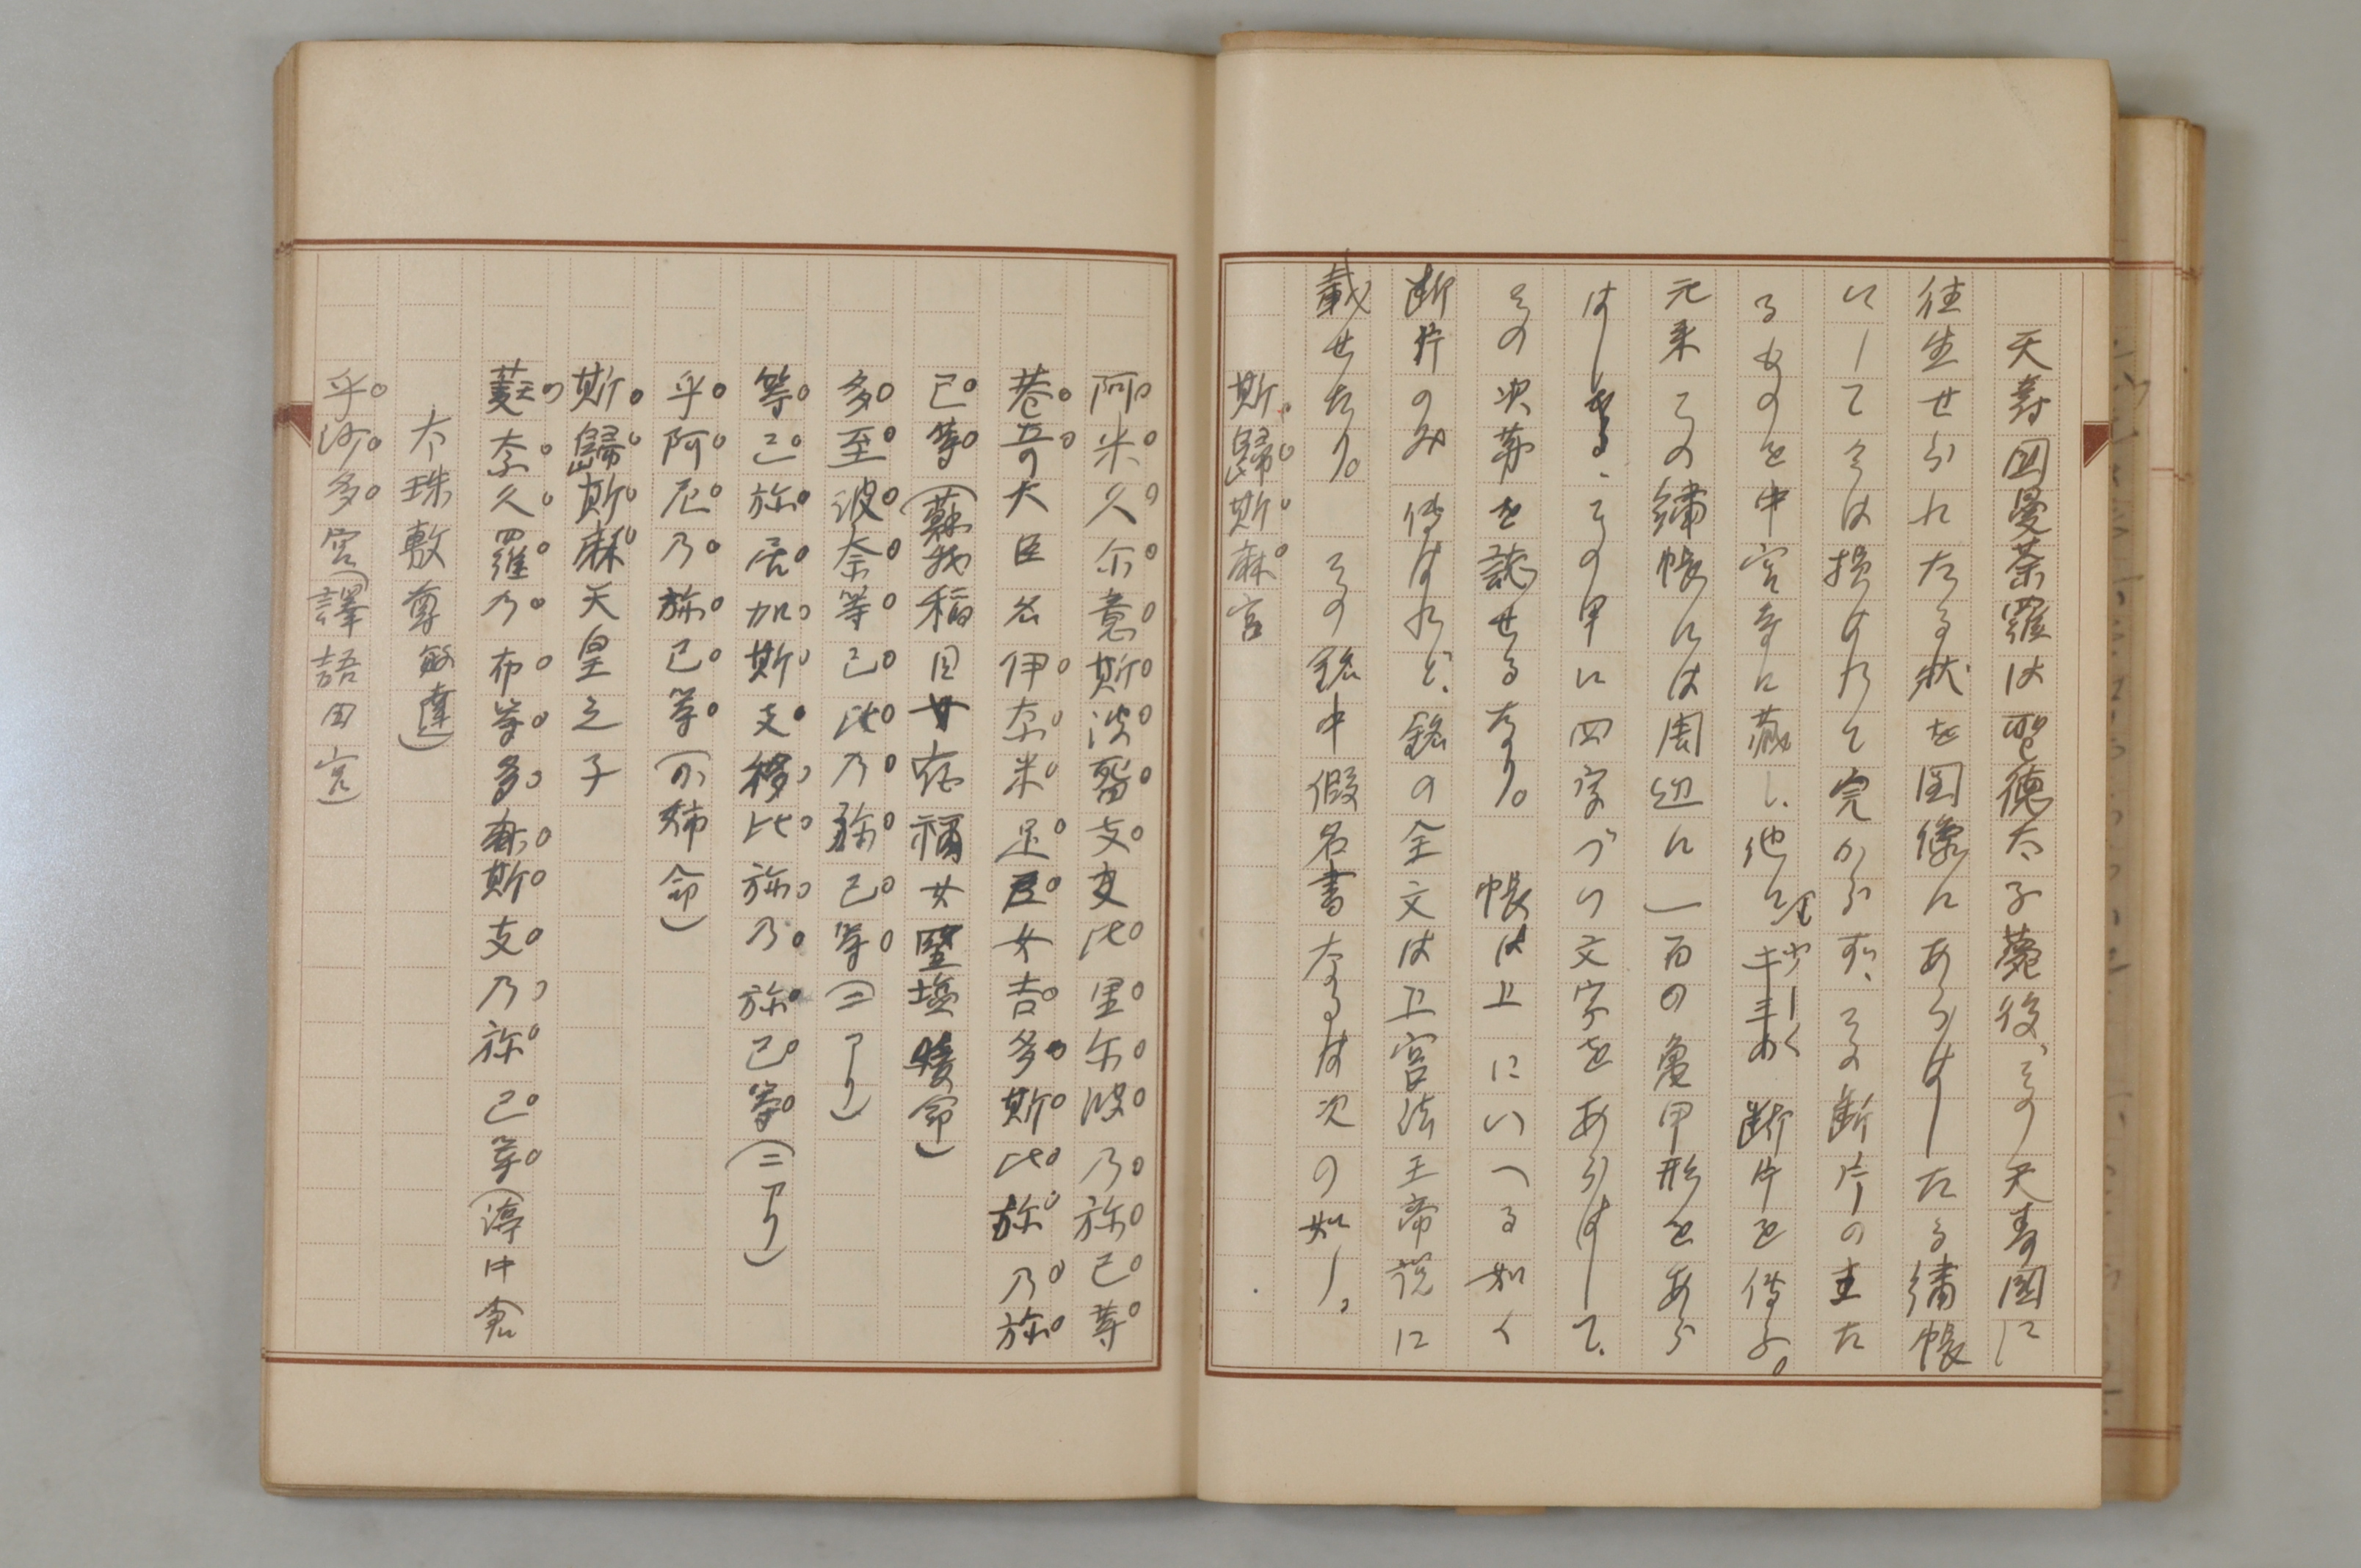 天壽囯曼荼羅は聖德太子薨後、その天壽國に
往生せられたる狀を圖像にあらはしたる繡帳
にして今は損はれて完からず、その斷片の主た
るものを中宮寺に藏し、他にも少しく斷片を傳ふ。
元来この繡帳には周辺に一百の龜甲形をあら
はしける、その甲に四字づつ文字をあらはして、
その次第を誌せるなり。帳は上にいへる如く
斷片のみ傳はれど、銘の全文は上宮法王帝説に
載せたり。その銘中假名書なるは次の如し。
斯歸斯麻宮
阿米久尓意斯波留支支比里尓波乃弥己等
巷奇大臣名伊奈米足尼女吉多斯比弥乃弥
己等(蘇我稲目女病稱女堅塩媛命)
多至波奈等己比乃弥己等(二アリ)
等己弥居加斯支移比弥乃弥己等(二アリ)
乎阿尼乃弥己等(小姉命)
斯歸斯麻天皇之子
蕤奈久羅乃布等多麻斯支乃弥己等(渟中倉
太珠敷尊敏達)
乎沙多宮(譯語田宮)